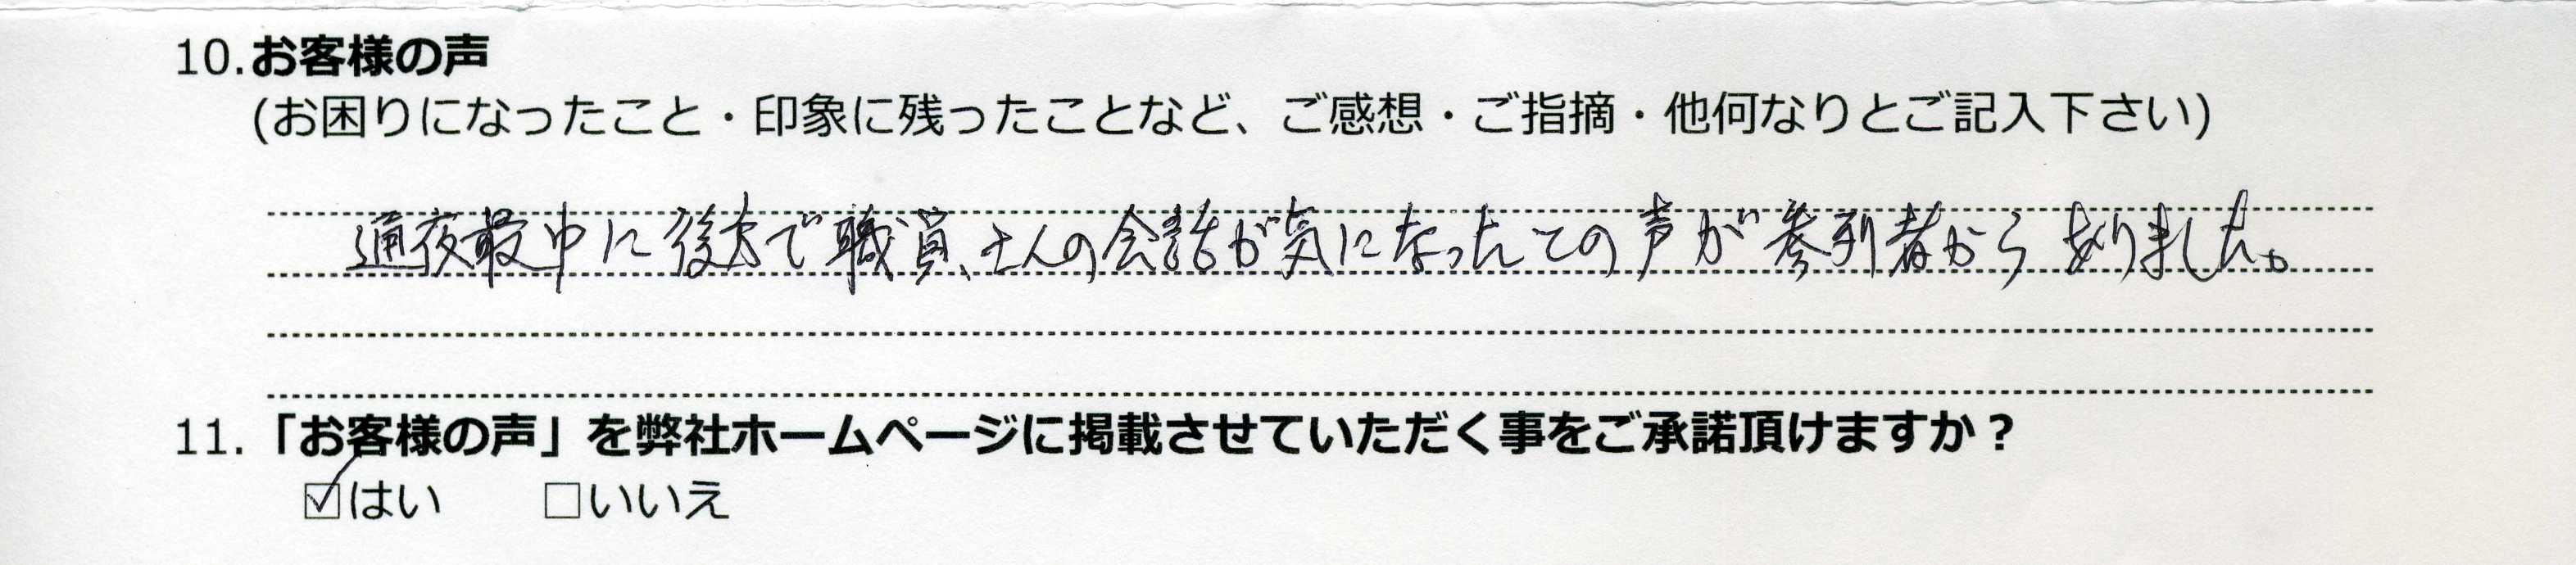 10.お客様の声
(お困りになったこと・印象に残ったことなど、ご感想・ご指摘・他何なりとご記入下さい)
通夜最中に後方で職員さんの会話が気になったとの声が参列者からありました。
11.「お客様の声」を弊社ホームページに掲載させていただく事をご承諾頂けますか？
☑はい □いいえ